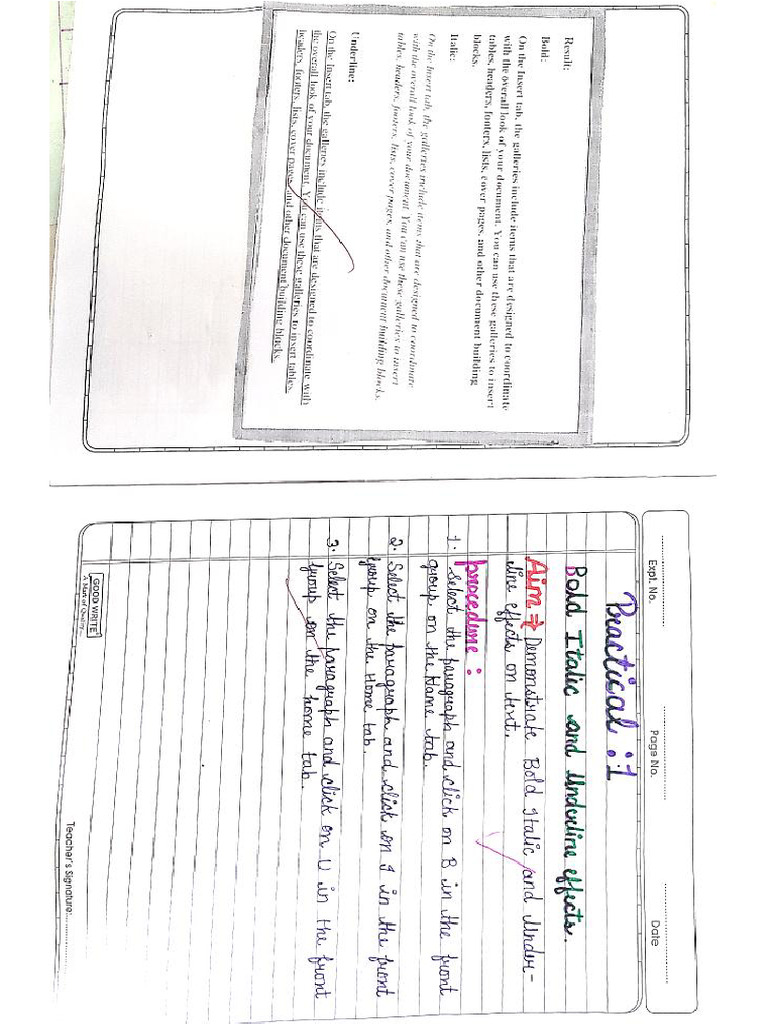 Result:
Bold:
On the Insert tab, the galleries include items that are designed to coordinate
with the overall look of your document. You can use these galleries to insert
tables, headers, footers, lists, cover pages, and other document building
blocks.
Italic:
On the Insert tab, the galleries include items that are designed to coordinate
with the overall look of your document. You can use these galleries to insert
tables, headers, footers, lists, cover pages, and other document building blocks.
Underline:
On the Insert tab, the galleries include items that are designed to coordinate with
the overall look of your document. You can use these galleries to insert tables,
headers, footers, lists, cover pages, and other document building blocks.
Expt. No. Page No. Date
Practical :1
Bold Italic and Underline effects.
Aim ⇒ Demonstrate Bold Italic and Under-
line effects on text.
procedure :
1. Select the paragraph and click on B in the front
group on the Home tab.
2. Select the paragraph and click on I in the front
group on the Home tab.
3. Select the paragraph and click on U in the front
group on the home tab.
GOOD WRITE
A Mark of Quality...
Teacher's Signature: